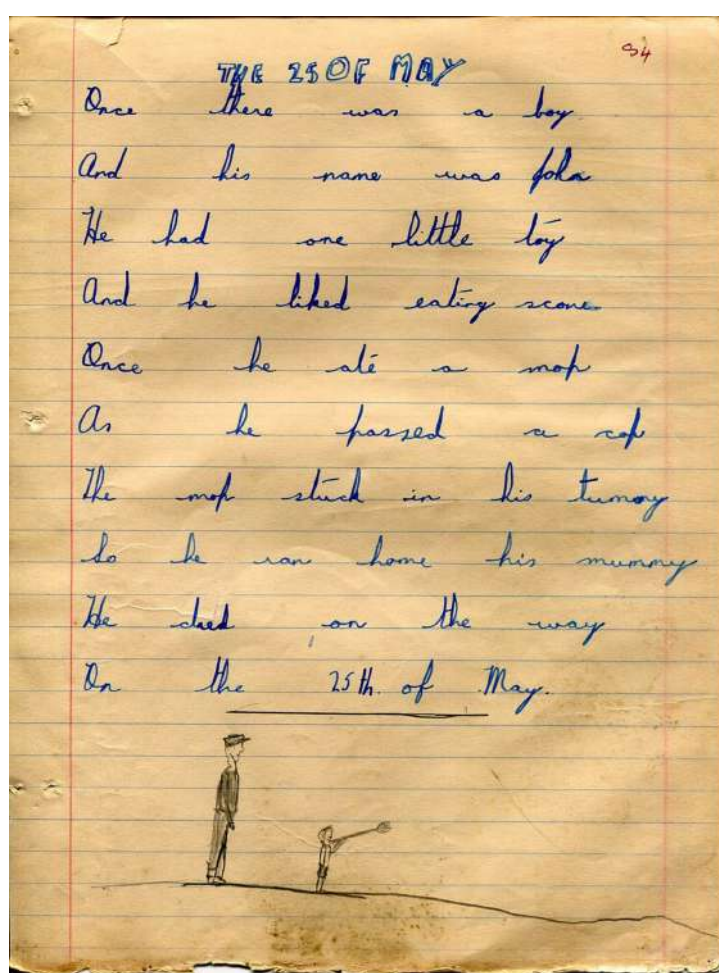 94
THE 25 OF MAY
Once there was a boy
And his name was John
He had one little toy
And he liked eating scone
Once he ate a mop
As he passed a cop
The mop stuck in his tummy
So he ran home his mummy
He died on the way
On the 25th. of May.